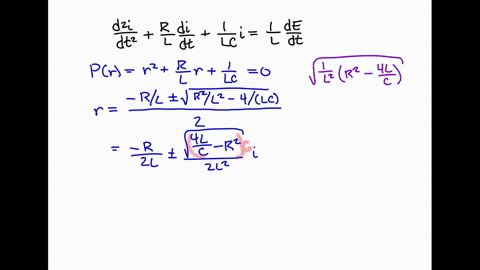 d²i/dt² + R/L di/dt + 1/LC i = 1/L dE/dt
P(r) = r² + R/L r + 1/LC = 0
√(1/L² (R² − 4L/C))
r = (−R/L ± √(R²/L² − 4/(LC)))/2
= −R/2L ± √(4L/C − R²)/2L² i